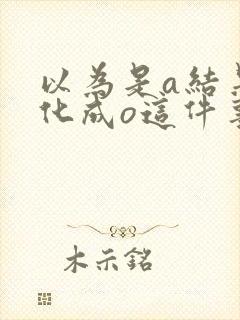 以為是a結果
化成o這件事
木示銘